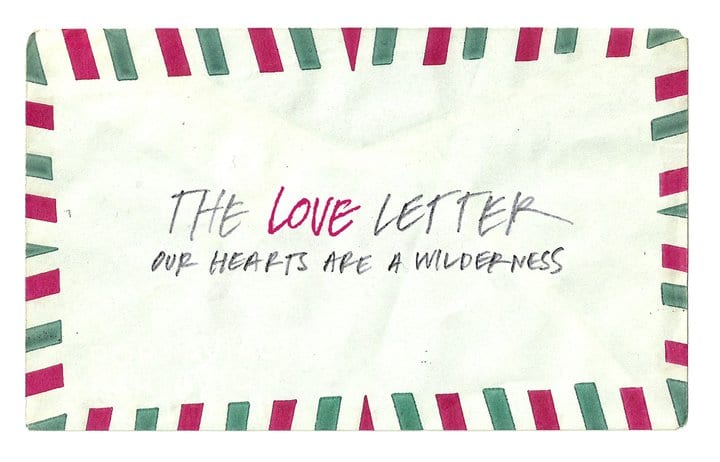 THE LOVE LETTER
OUR HEARTS ARE A WILDERNESS